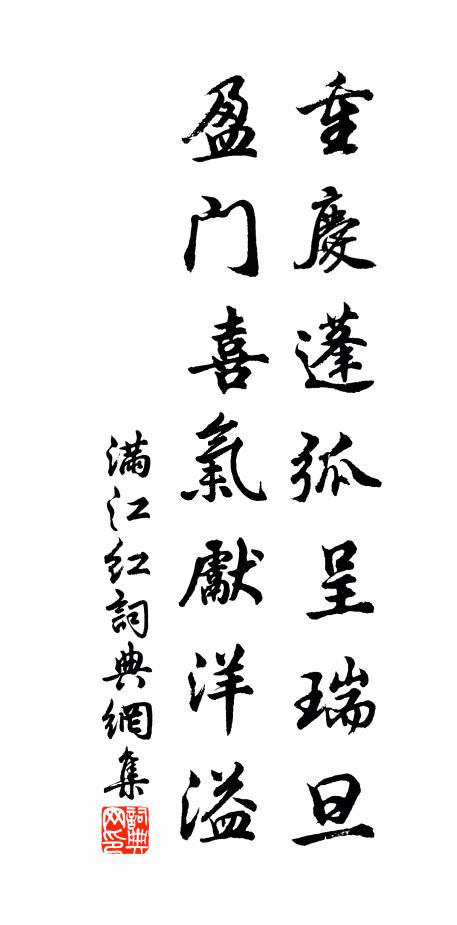 重慶蓬弧呈瑞旦
盈门喜氣獻洋溢
满江红詞典網集
詞典网印